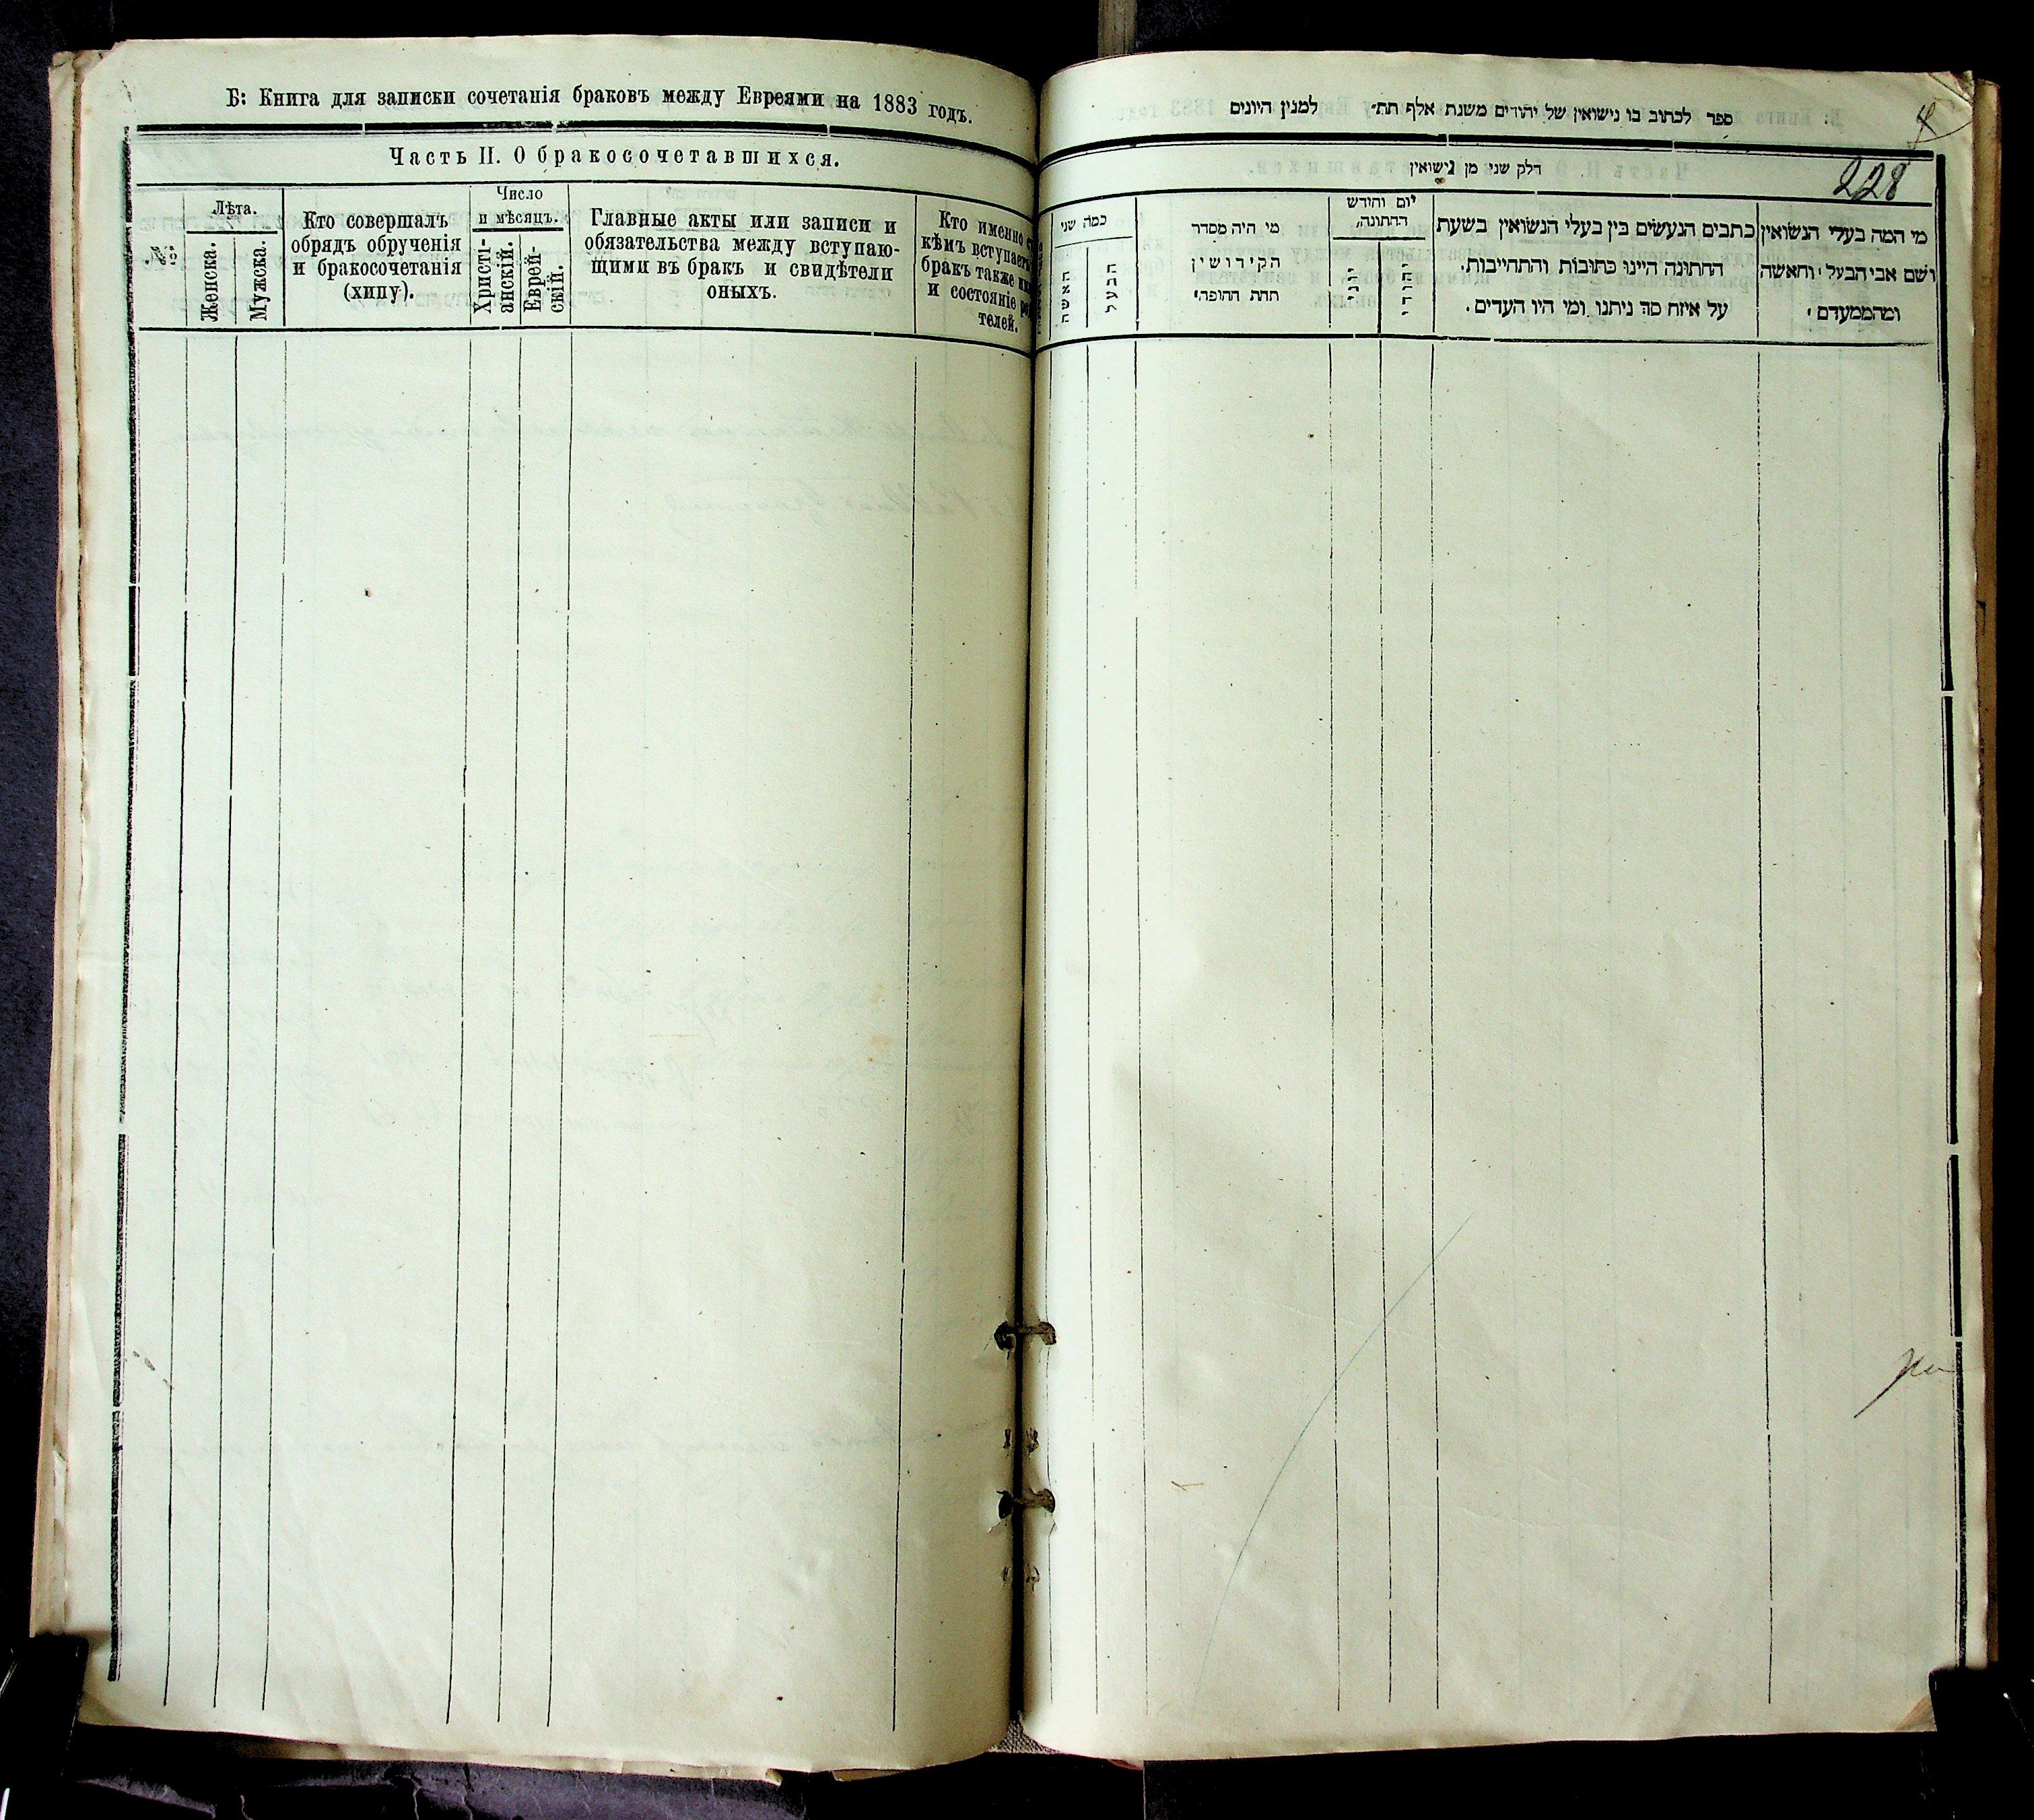 Б: Книга для записки сочетанія браковъ между Евреями на 1883 годъ.
Часть II. О бракосочетавшихся.
№
Лѣта.
Женска.
Мужска.
Кто совершалъ
обрядъ обрученія
и бракосочетанія
(хипу).
Число
и мѣсяцъ.
Христі-
анскій.
Еврей-
скій.
Главные акты или записи и
обязательства между вступаю-
щими въ бракъ и свидѣтели
оныхъ.
Кто именно
кѣмъ вступаетъ
бракъ также
и состояніе
телей.
ספר לכתוב בו נישואין של יהודים משנת אלף תת״ למנין היונים
228
חלק שני מן נישואין
מי המה בעלי הנשואין
ושם אבי הבעל ׳ והאשה
ומהממעדם ׳
כתבים הנעשים בין בעלי הנשואין בשעת
החתונה היינו כתובות והתחייבות.
על איזח סך ניתנו ומי היו העדים.
יום וחידש
החתונה,
יהודי
יוני
מי היה מסדר
הקידושין
תחת החופה׳
כמה שני
הבעל
האשה